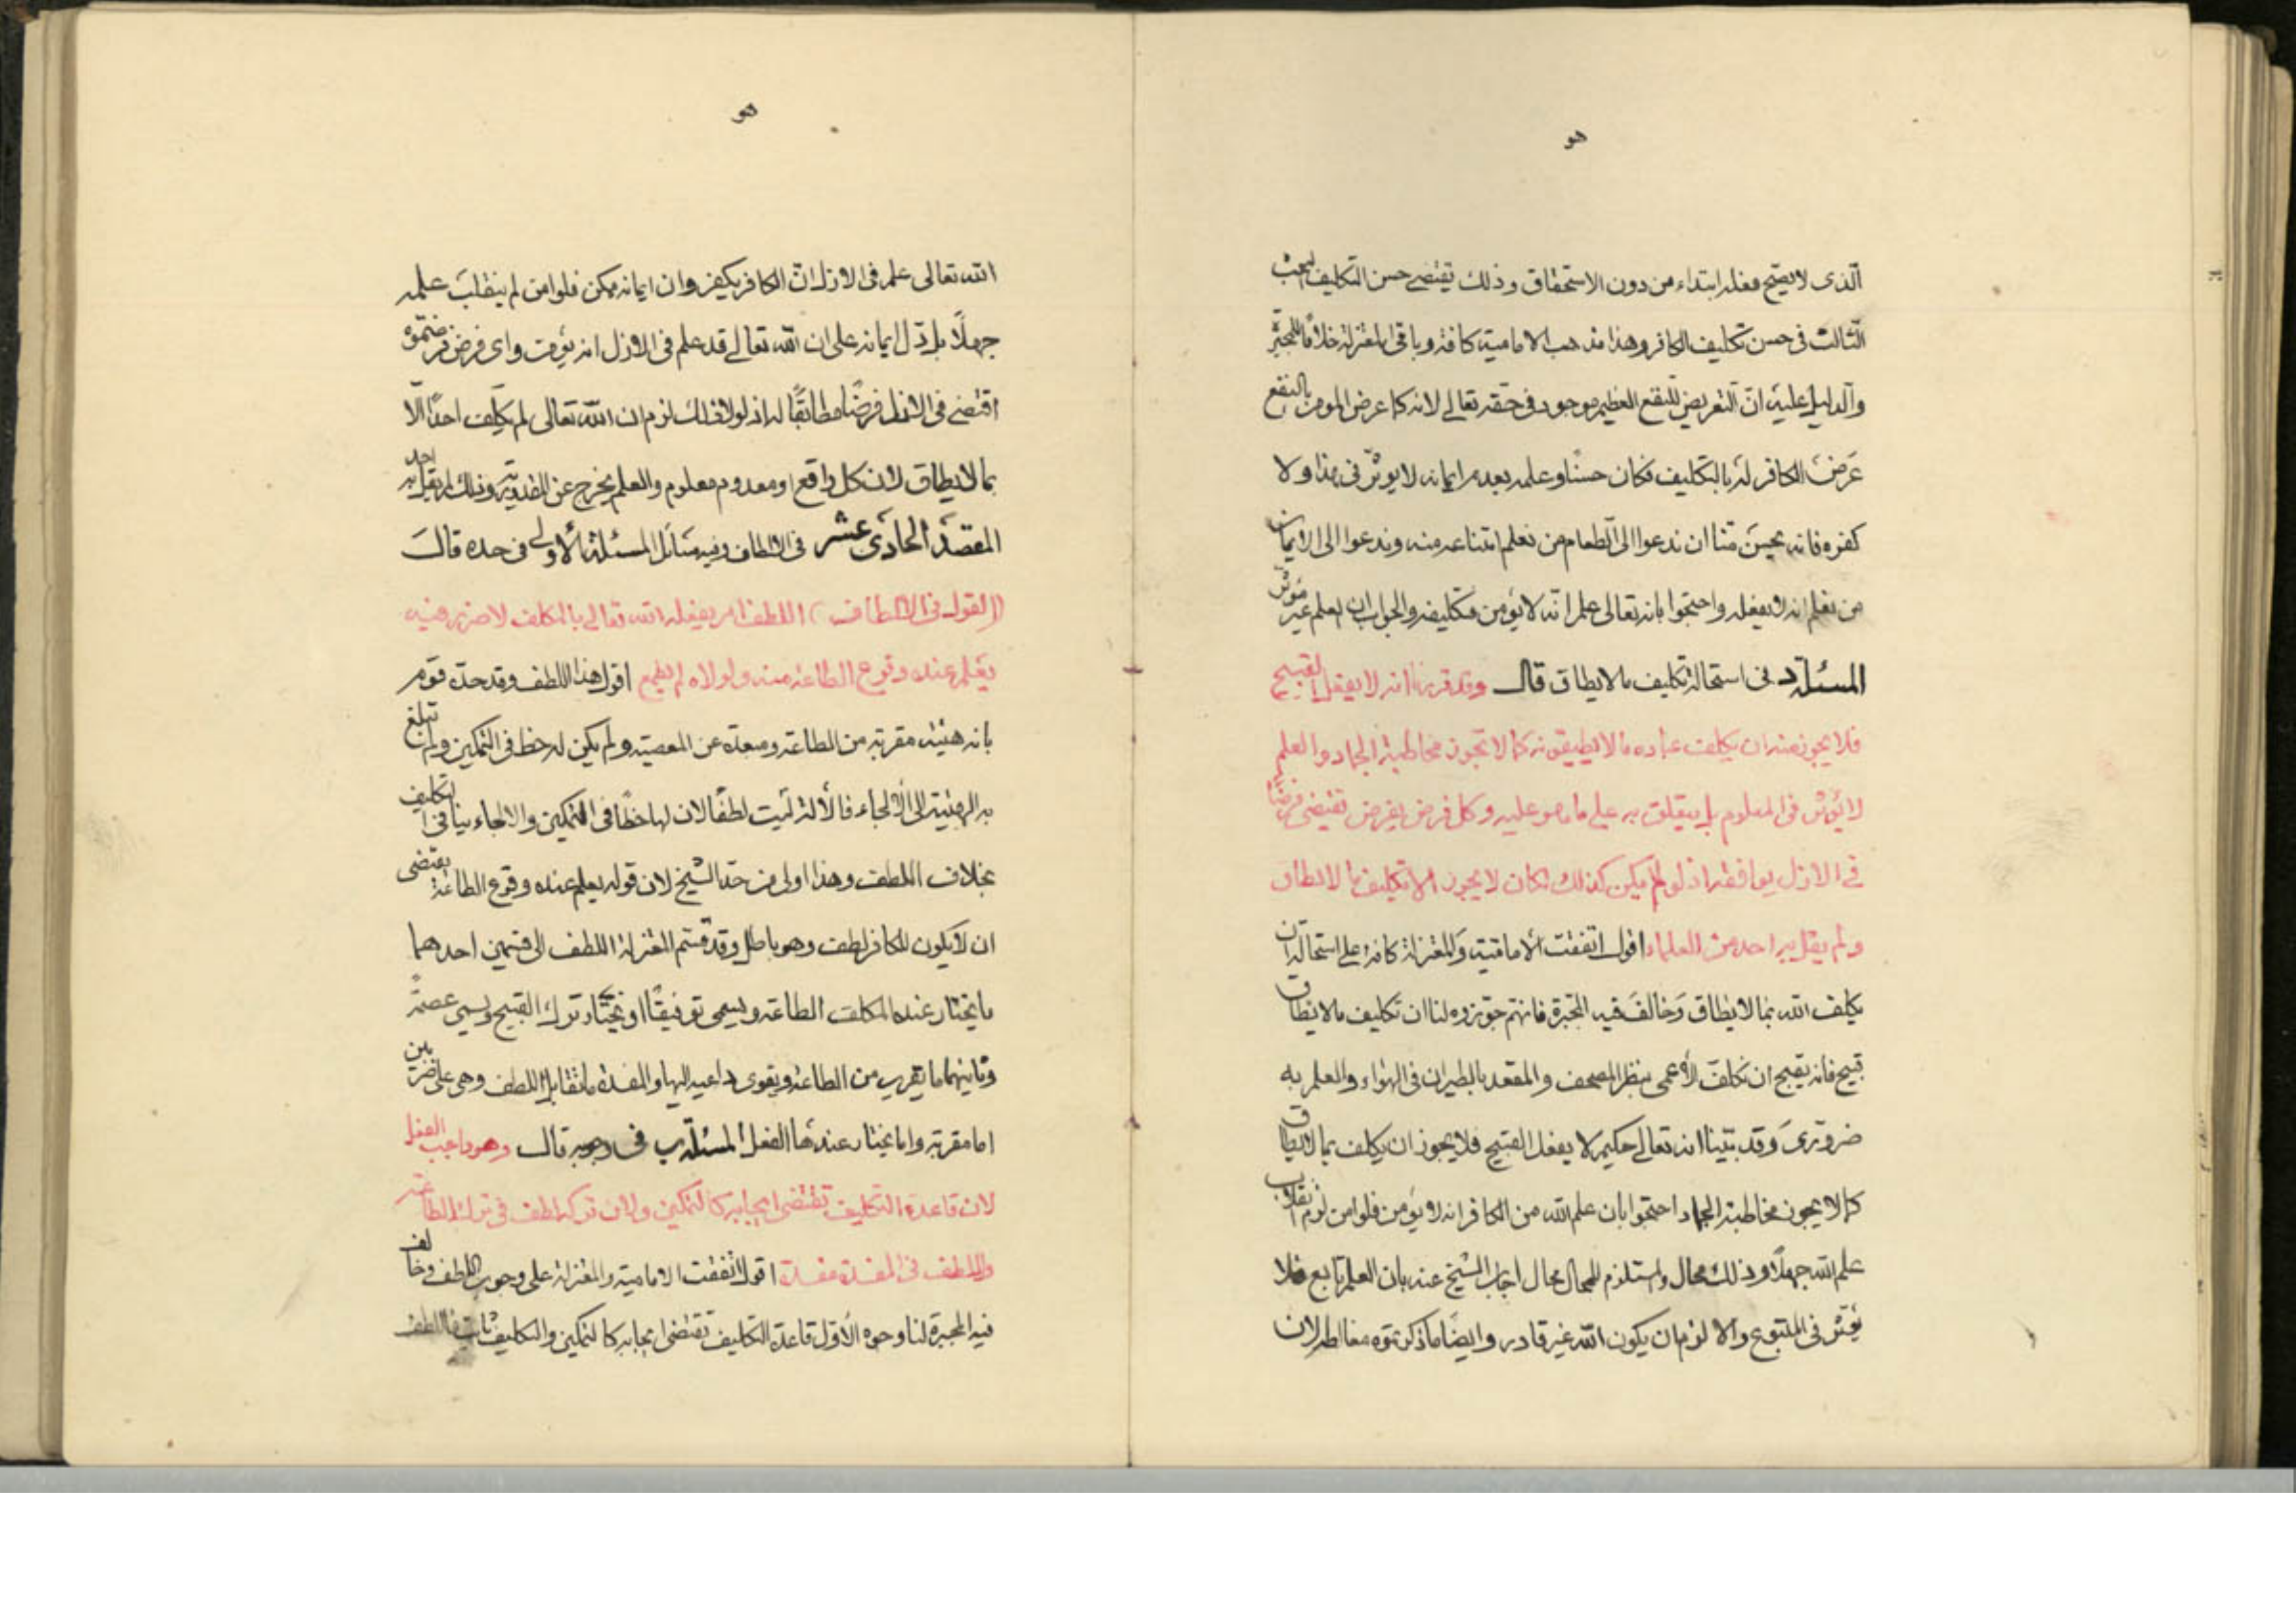 هو
الّذی لا یصح فعله ابتداء من دون الاستحقاق و ذلك یقتضی حسن التكلیف البحث
الثّالث فی حسن تكلیف الكافر وهذا مذهب الامامیة كافة و باقی المعتزلة خلافًا للمجبّرة
والدّلیل علیه انّ التّعریض للنّفع العظیم موجود فی حقّه تعالی لانه كما عرض المومن بالنفع
عَرض الكافر له بالتكلیف فكان حسنًا و علمه بعدم ایمانه لا یوثّر فی هذا و لا
كفره فانه یحسن منّا ان ندعوا الی الطّعام من نعلم امتناعه منه و ندعوا الی الایمان
من نعلم انه لا یفعله و احتجوا بانه تعالی علم انّه لا یؤمن فتكلیفه والجواب ان العلم غیر موثّر
المسئلة د فی استحالة تكلیف ما لا یطاق قال وقد قررنا انه لا یفعل القبیح
فلا یجوز منه ان یكلف عباده ما لا یطیقونه كما لا تجوز مخاطبة الجماد والعلم
لا یؤثّر فی المعلوم بل یتعلق به علی ما هو علیه وكل فرض یفرض تقتضی فرضًا
فی الازل یوافقه اذ لو لم یكن كذلك لكان لا یجوز الا تكلیف ما لا یطاق
ولم یقل به احد من العلماء اقول اتفقت الامامیّة والمعتزلة كافة علی استحالة ان
یكلف الله بما لا یطاق وَخالفَ فیه المجبّرة فانهم جوّزوه لنا ان تكلیف ما لا یطاق
قبیح فانه یقبح ان نكلف الأعمی بنظر المصحف و المقعد بالطیران فی الهواء والعلم به
ضروریّ وقد بیّنا انه تعالی حكیم لا یفعل القبیح فلا یجوز ان یكلف بما لا یطاق
كما لا یجوز مخاطبة الجماد احتجوا بان علم الله من الكافر انه لا یؤمن فلو امن لزم انقلاب
علم الله جهلًا وذلك محال و المستلزم للمحال محال اجاب الشیخ عنه بان العلم تابع فلا
یؤثّر فی المتبوع والا لزم ان یكون الله غیر قادر و ایضًا ما ذكرتموه مغالطة لان
هو
الله تعالی علم فی الازل انّ الكافر یكفر وان ایمانه ممكن فلو امن لم ینقلب علمه
جهلًا بل دّل ایمانه علی ان الله تعالی قد علم فی الازل انه یؤمن و ای فرض فرضتموه
اقتضی فی الازل فرضًا مطابقًا له اذ لو لا ذلك لزم ان الله تعالی لم یكلف احدًا الّا
بما لا یطاق لان كل واقع او معدوم معلوم والعلم یخرج عن القدریّة وذلك لم یقل به احد
المقصد الحادی عشر فی الالطاف وفیه مسَائل المسئلة الأولی فی حده قالَ
(القول فی الالطاف) اللطف امر یفعله الله تعالی بالمكلف لا ضرر فیه
یعلم عنده وقوع الطاعة منه ولولاه لم یطع اقول هذا اللطف وقد حدّه قوم
بانه هیئة مقربة من الطاعة ومبعدة عن المعصیة و لم یكن له حظ فی التمكین ولم تبلغ
به الهیئة الی الالجاء فالألة لیست لطفًا لان لها حظًا فی التمكین والالجاء ینافی التكلیف
بخلاف اللطف وهذا اولی من حدّ الشیخ لان قوله یعلم عنده وقوع الطاعة یقتضی
ان لا یكون للكافر لطف وهو باطل وقد قسّم المعتزلة اللطف الی قسمین احدهما
ما یختار عنده المكلف الطاعة ویسمی توفیقًا او یختار ترك القبیح ویسمی عصمةً
وثانیهما ما یقرب من الطاعة ویقوی داعیه الیها والمفسدة ما تقابل اللطف وهی علی ضربین
اما مقربة واما یختار عندها الفعل المسئلة ب فی وجوبه قال وهو واجب الفعل
لان قاعدة التكلیف تقتضی ایجابه كالتمكین ولان ترك اللطف فی ترك الطاعة
واللطف فی المفسدة مفسدة اقول اتفقت الامامیة والمعتزلة علی وجوب اللطف وخالف
فیه المجبرة لنا وجوه الأوّل قاعدة التكلیف تقتضی ایجابه كالتمكین والتكلیف ثابت فاللطف